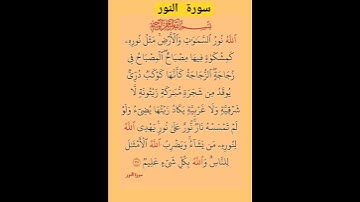 سورة النور
بِسْمِ اللَّهِ الرَّحْمَٰنِ الرَّحِيمِ
اللَّهُ نُورُ السَّمَوَٰتِ وَالْأَرْضِ مَثَلُ نُورِهِ
كَمِشْكَوٰةٍ فِيهَا مِصْبَاحٌ الْمِصْبَاحُ فِى
زُجَاجَةٍ الزُّجَاجَةُ كَأَنَّهَا كَوْكَبٌ دُرِّىٌّ
يُوقَدُ مِن شَجَرَةٍ مُّبَٰرَكَةٍ زَيْتُونَةٍ لَّا
شَرْقِيَّةٍ وَلَا غَرْبِيَّةٍ يَكَادُ زَيْتُهَا يُضِىٓءُ وَلَوْ
لَمْ تَمْسَسْهُ نَارٌ نُّورٌ عَلَىٰ نُورٍ يَهْدِى اللَّهُ
لِنُورِهِ مَن يَشَآءُ وَيَضْرِبُ اللَّهُ الْأَمْثَٰلَ
لِلنَّاسِ وَاللَّهُ بِكُلِّ شَىْءٍ عَلِيمٌ ٣٥
سورة النور